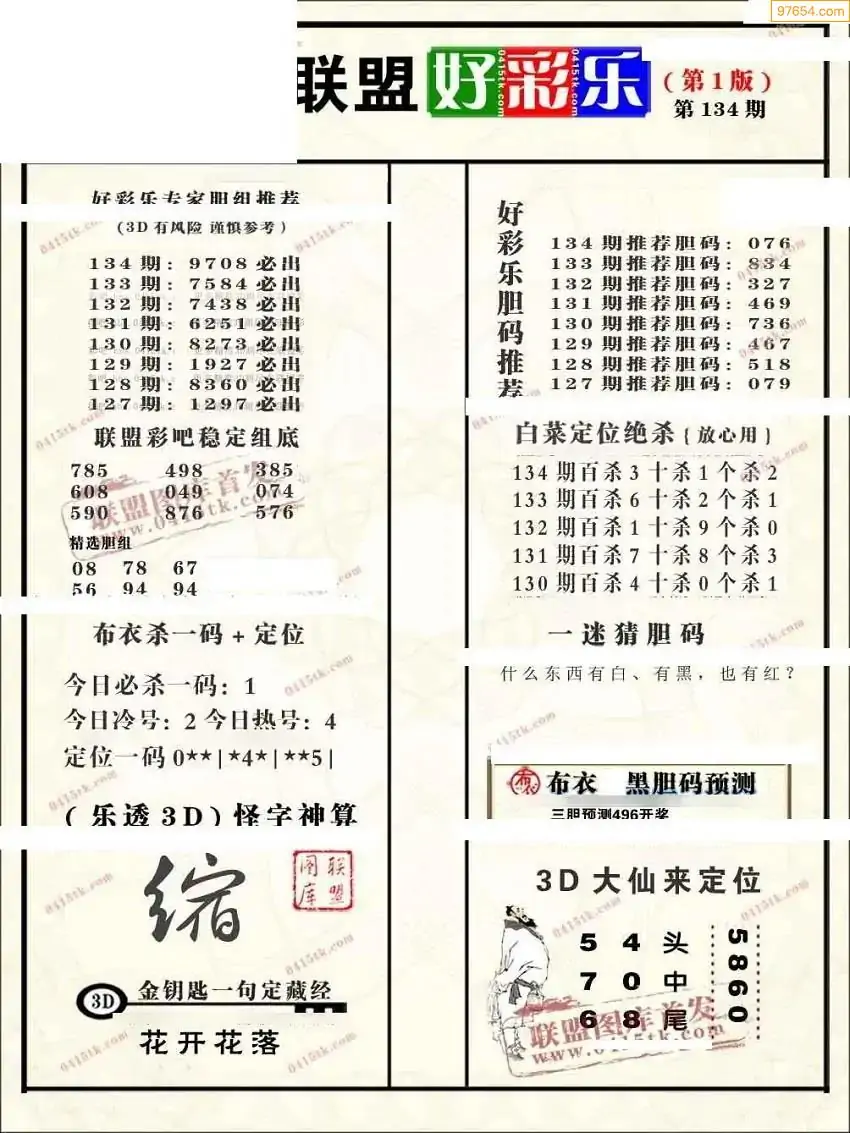 97654.com
联盟 好彩乐 (第1版)
第 134 期
好彩乐专家胆组推荐
(3D 有风险 谨慎参考)
134 期: 9708 必出
133 期: 7584 必出
132 期: 7438 必出
131 期: 6251 必出
130 期: 8273 必出
129 期: 1927 必出
128 期: 8360 必出
127 期: 1297 必出
联盟彩吧稳定组底
785 498 385
608 049 074
590 876 576
联盟图库首发
www.0415tk.com
精选胆组
08 78 67
56 94 94
布衣杀一码 + 定位
今日必杀一码: 1
今日冷号: 2 今日热号: 4
定位一码 0**|*4*|**5|
(乐透 3D) 怪字神算
缩
联盟图库
3D 金钥匙一句定藏经
花开花落
好彩乐胆码推荐
134 期推荐胆码: 076
133 期推荐胆码: 834
132 期推荐胆码: 327
131 期推荐胆码: 469
130 期推荐胆码: 736
129 期推荐胆码: 467
128 期推荐胆码: 518
127 期推荐胆码: 079
白菜定位绝杀 { 放心用 }
134 期百杀 3 十杀 1 个杀 2
133 期百杀 6 十杀 2 个杀 1
132 期百杀 1 十杀 9 个杀 0
131 期百杀 7 十杀 8 个杀 3
130 期百杀 4 十杀 0 个杀 1
一迷猜胆码
什么东西有白、有黑，也有红?
布 布衣 黑胆码预测
三胆预测496开奖
3D 大仙来定位
5 4 头
7 0 中
6 8 尾
5860
联盟图库首发
www.0415tk.com